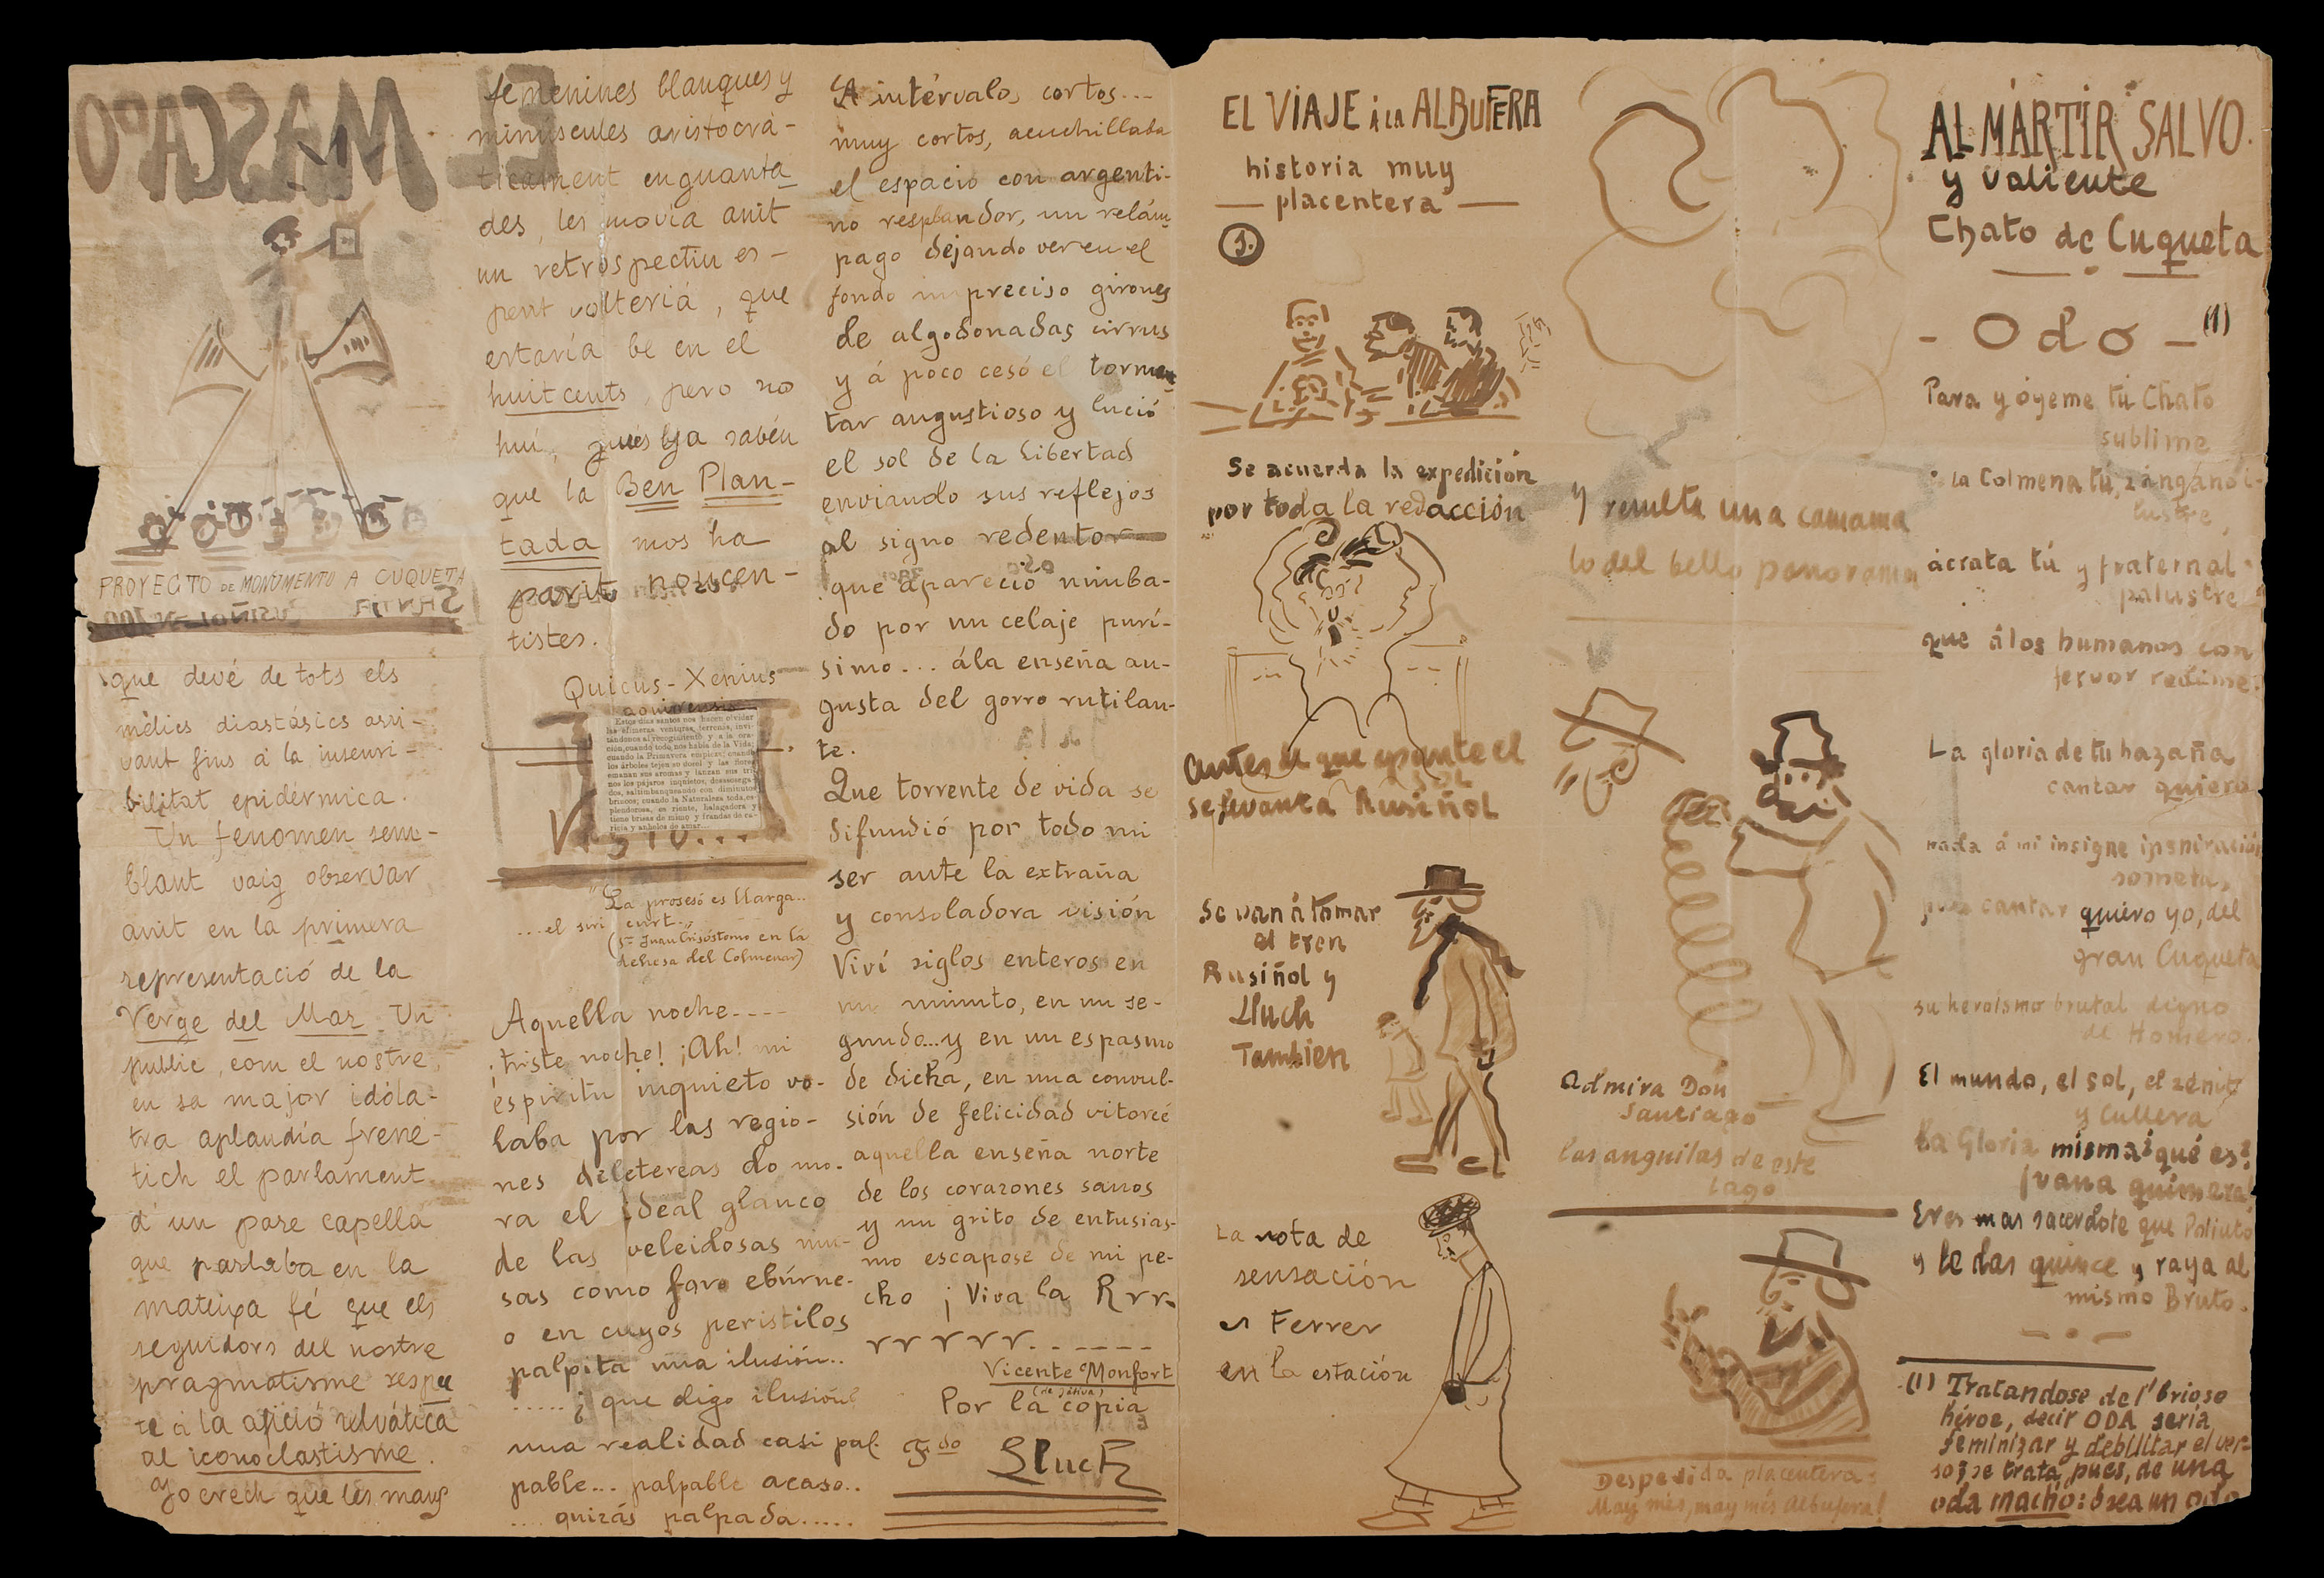 EL MASCARO
PROYECTO DE MONUMENTO A CUQUETA
que devé de tots els
mélics diastásics arri-
vant fins á la insensi-
bilitat epidérmica.
Un fenomen sem-
blant vaig observar
anit en la primera
representació de la
Verge del Mar. Un
public, com el nostre
en sa major idóla-
tra aplaudía frené-
tich el parlament
d'un pare capellá
que parlaba en la
mateixa fé que els
seguidors del nostre
pragmatisme respec
te á la afició
al iconoclastisme.
Yo crech que les mans
femenines blanques y
minuscules aristocrá-
ticament enguanta
des, les movía anit
un retrospectiu es-
perit volteriá, que
estaría be en el
huitcents, pero no
hui, pues ya sabén
que la Ben Plan-
tada mos ha
parit noucen-
tistes.
Quicus-Xenius
Estos días santos nos hacen olvidar
las efímeras venturas terrenas, invi-
tándonos al recogimiento y a la ora-
ción, cuando todo nos habla de la Vida;
cuando la Primavera empieza; cuando
los árboles tejen su dosel y las flores
emanan sus aromas y lanzan sus tri-
nos los pájaros inquietos, desasosega-
dos, saltimbanqueando con diminutos
brincos; cuando la Naturaleza toda, es-
plendorosa, es riente, halagadora y
tiene brisas de mimo y frondas de ca-
ricia y anhelos de amar...
"La prosesó es llarga..
...el siri curt.."
(Sn Juan Crisóstomo en la
dehesa del Colmenar)
Aquella noche----
¡triste noche! ¡Ah! mi
espíritu inquieto vo-
laba por las regio-
nes deletereas do mo-
ra el ideal glauco
de las veleidosas mu-
sas como faro ebúrne-
o en cuyos peristilos
palpita una ilusión..
.....¿que digo ilusión?
una realidad casi pal-
pable... palpable acaso..
.... quizás palpada.....
A intérvalos cortos...
muy cortos, acuchillada
el espacio con argenti-
no resplandor, un relám
pago dejando ver en el
fondo impreciso girones
de algodonadas cirrus
y á poco cesó el tormen
tar angustioso y lució
el sol de la Libertad
enviando sus reflejos
al signo redentor
que apareció nimba-
do por un celaje purí-
simo... á la enseña au-
gusta del gorro rutilan-
te.
Que torrente de vida se
difundió por todo mi
ser ante la extraña
y consoladora visión
Viví siglos enteros en
un minuto, en un se-
gundo...y en un espasmo
de dicha, en una convul-
sión de felicidad vitoreé
aquella enseña norte
de los corazones sanos
y un grito de entusias-
mo escapose de mi pe-
cho ¡Viva la Rrr-
rrrrr------
Vicente Monfort
(de Játiva)
Por la copia
Fdo
Lluch
EL VIAJE á LA ALBUFERA
historia muy
— placentera —
1.
Se acuerda la expedición
por toda la redacción
antes de que apunte el sol
se levanta Rusiñol
Se van á tomar
el tren
Rusiñol y
Lluch
Tambien
La nota de
sensación
es Ferrer
en la estación
Y resulta una camama
lo del bello panorama
Admira Don
Santiago
las anguilas de este
lago
Despedida placentera:
May més, may més Albufera!
AL MÁRTIR SALVO.
y valiente
Chato de Cuqueta
- Odo - (1)
Para y óyeme tú Chato
sublime
la Colmena tú, zángano i-
lustre,
ácrata tú y fraternal
palustre
que á los humanos con
fervor redime.
La gloria de tu hazaña
cantar quiero
nada á mi insigne inspiración
someta,
pues cantar quiero yo, del
gran Cuqueta
su heroismo brutal digno
de Homero.
El mundo, el sol, el zénit
y Cullera
La Gloria misma ¿qué es?
¡vana quimera!
Eres mas sacerdote que Poliuto
y le das quince y raya al
mismo Bruto.
(1) Tratandose del brioso
héroe, decir ODA sería
feminizar y debilitar el ver-
so, se trata, pues, de una
oda macho: ósea un odo